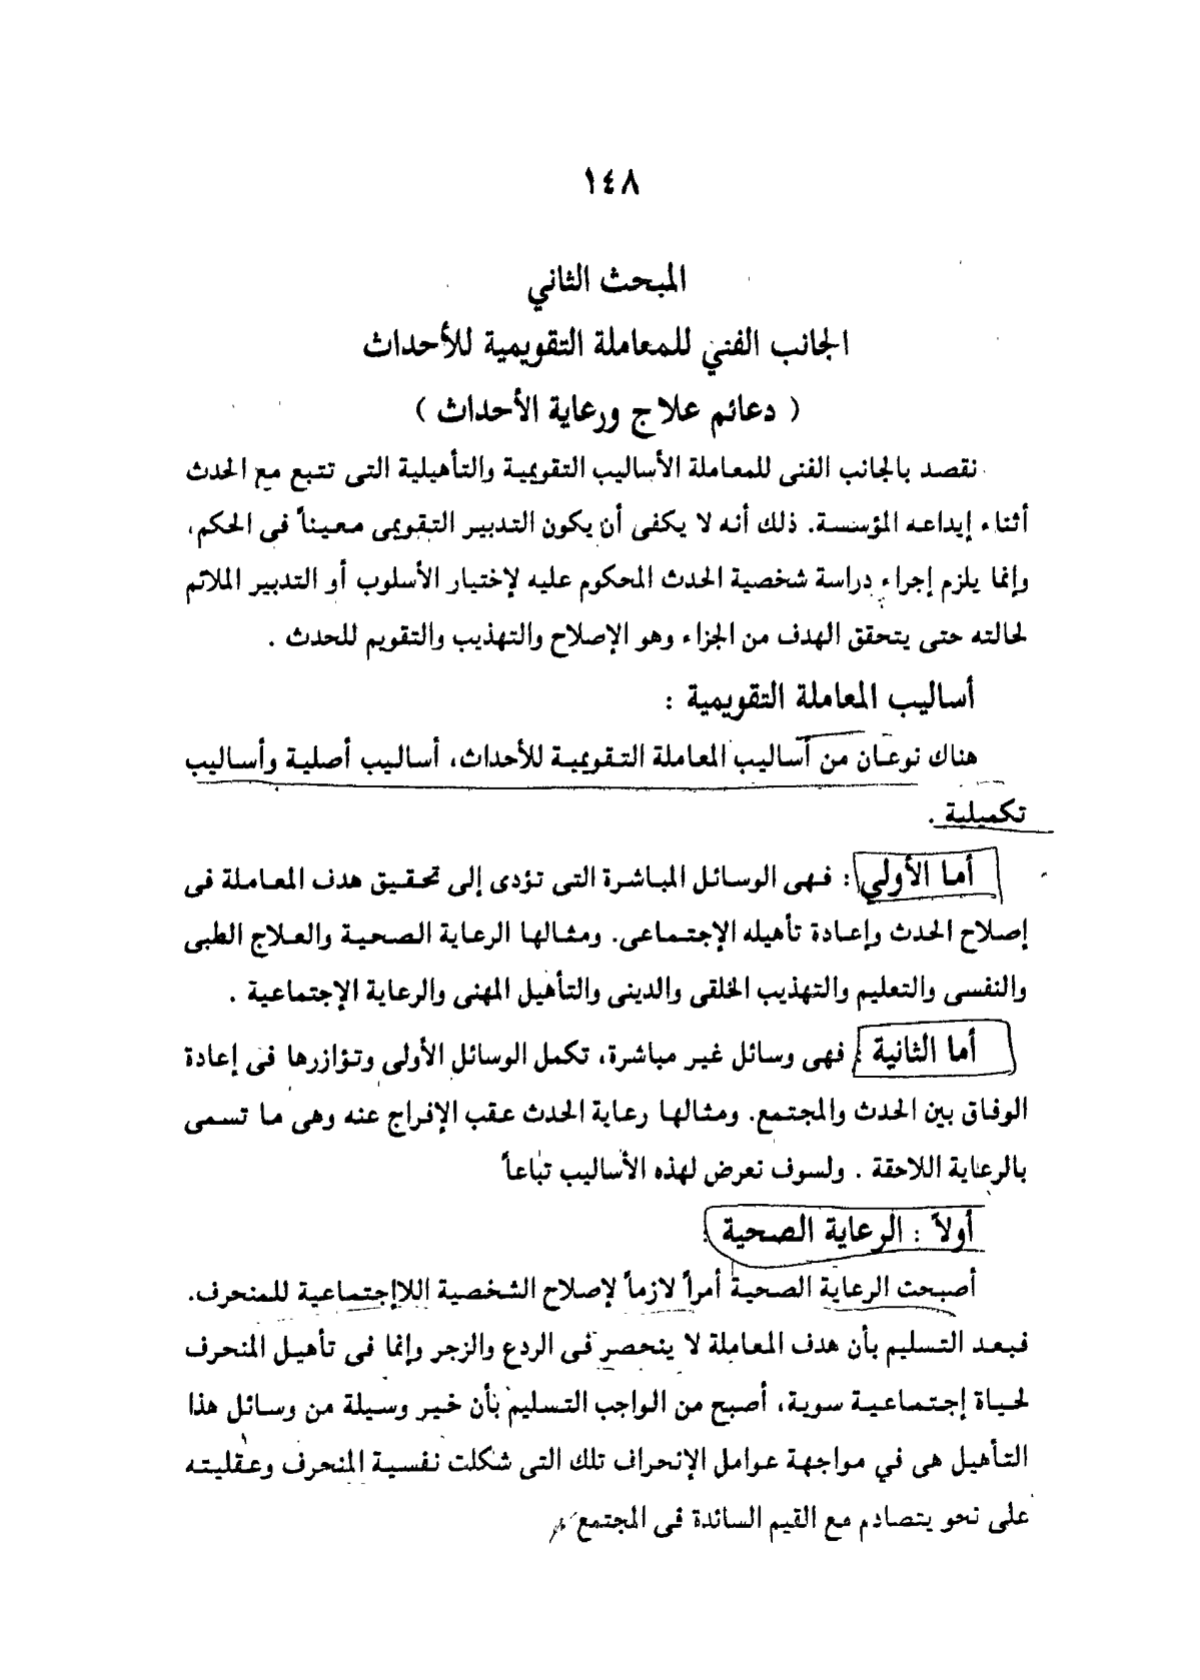 ١٤٨
المبحث الثاني
الجانب الفني للمعاملة التقويمية للأحداث
( دعائم علاج ورعاية الأحداث )
نقصد بالجانب الفنى للمعاملة الأساليب التقويمية والتأهيلية التى تتبع مع الحدث
أثناء إيداعه المؤسسة. ذلك أنه لا يكفى أن يكون التدبير التقويمى معيناً فى الحكم،
وإنما يلزم إجراء دراسة شخصية الحدث المحكوم عليه لإختيار الأسلوب أو التدبير الملائم
لحالته حتى يتحقق الهدف من الجزاء وهو الإصلاح والتهذيب والتقويم للحدث .
أساليب المعاملة التقويمية :
هناك نوعان من أساليب المعاملة التقويمية للأحداث، أساليب أصلية وأساليب
تكميلية .
أما الأولي : فهى الوسائل المباشرة التى تؤدى إلى تحقيق هدف المعاملة فى
إصلاح الحدث وإعادة تأهيله الإجتماعى. ومثالها الرعاية الصحية والعلاج الطبى
والنفسى والتعليم والتهذيب الخلقى والدينى والتأهيل المهنى والرعاية الإجتماعية .
أما الثانية : فهى وسائل غير مباشرة، تكمل الوسائل الأولى وتؤازرها فى إعادة
الوفاق بين الحدث والمجتمع. ومثالها رعاية الحدث عقب الإفراج عنه وهى ما تسمى
بالرعاية اللاحقة . ولسوف نعرض لهذه الأساليب تباعاً
أولاً : الرعاية الصحية :
أصبحت الرعاية الصحية أمراً لازماً لإصلاح الشخصية اللاإجتماعية للمنحرف.
فبعد التسليم بأن هدف المعاملة لا ينحصر فى الردع والزجر وإنما فى تأهيل المنحرف
لحياة إجتماعية سوية، أصبح من الواجب التسليم بأن خير وسيلة من وسائل هذا
التأهيل هى في مواجهة عوامل الإنحراف تلك التى شكلت نفسية المنحرف وعقليته
على نحو يتصادم مع القيم السائدة فى المجتمع